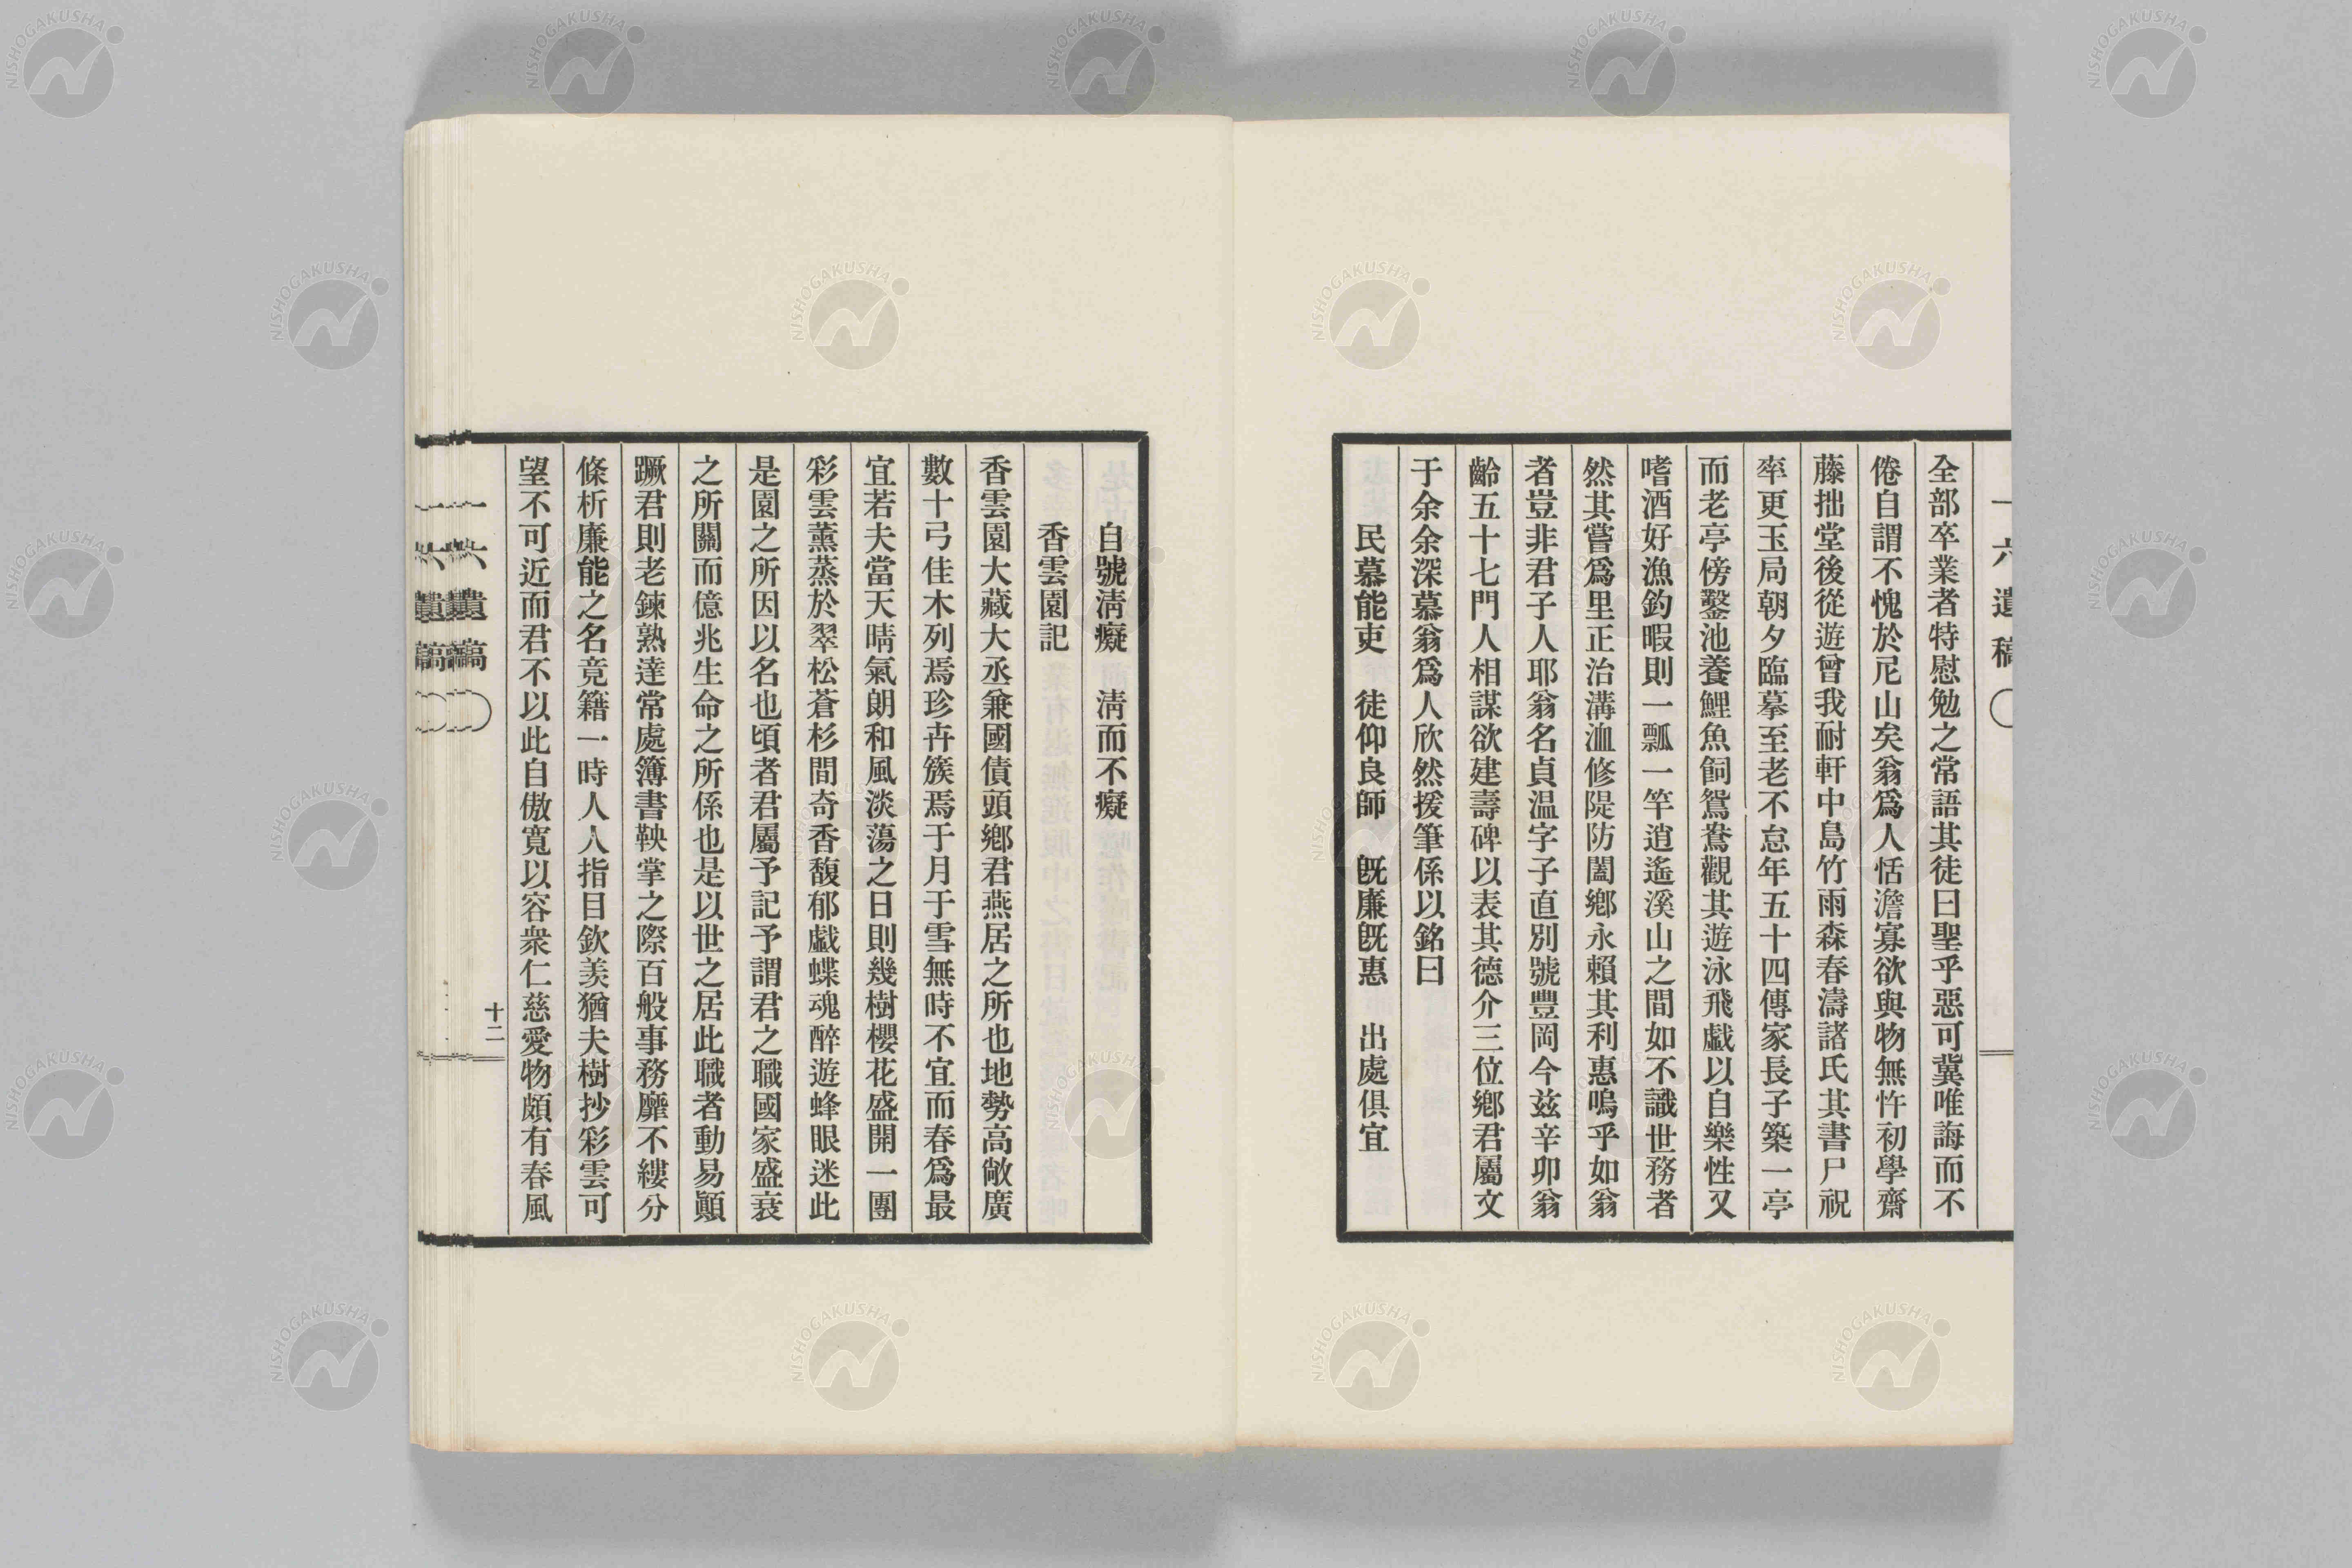 一六遺稿
全部卒業者特慰勉之常語其徒曰聖乎惡可冀唯誨而不
倦自謂不愧於尼山矣翁爲人恬澹寡欲與物無忤初學齋
藤拙堂後從遊曾我耐軒中島竹雨森春濤諸氏其書尸祝
率更玉局朝夕臨摹至老不怠年五十四傳家長子築一亭
而老亭傍鑿池養鯉魚飼鴛鴦觀其遊泳飛戯以自樂性又
嗜酒好漁釣暇則一瓢一竿逍遙溪山之間如不識世務者
然其嘗爲里正治溝洫修隄防闔鄕永賴其利惠嗚乎如翁
者豈非君子人耶翁名貞温字子直別號豐岡今茲辛卯翁
齡五十七門人相謀欲建壽碑以表其德介三位鄕君屬文
于余余深慕翁爲人欣然援筆係以銘曰
民慕能吏　徒仰良師　旣廉旣惠　出處俱宜
自號淸癡　淸而不癡
香雲園記
香雲園大藏大丞兼國債頭鄕君燕居之所也地勢高敞廣
數十弓佳木列焉珍卉簇焉于月于雪無時不宜而春爲最
宜若夫當天晴氣朗和風淡蕩之日則幾樹櫻花盛開一團
彩雲薰蒸於翠松蒼杉間奇香馥郁戯蝶魂醉遊蜂眼迷此
是園之所因以名也頃者君屬予記予謂君之職國家盛衰
之所關而億兆生命之所係也是以世之居此職者動易顚
蹶君則老鍊熟達常處簿書鞅掌之際百般事務靡不縷分
條析廉能之名竟籍一時人人指目欽羨猶夫樹抄彩雲可
望不可近而君不以此自傲寬以容衆仁慈愛物頗有春風
一六遺稿
十二